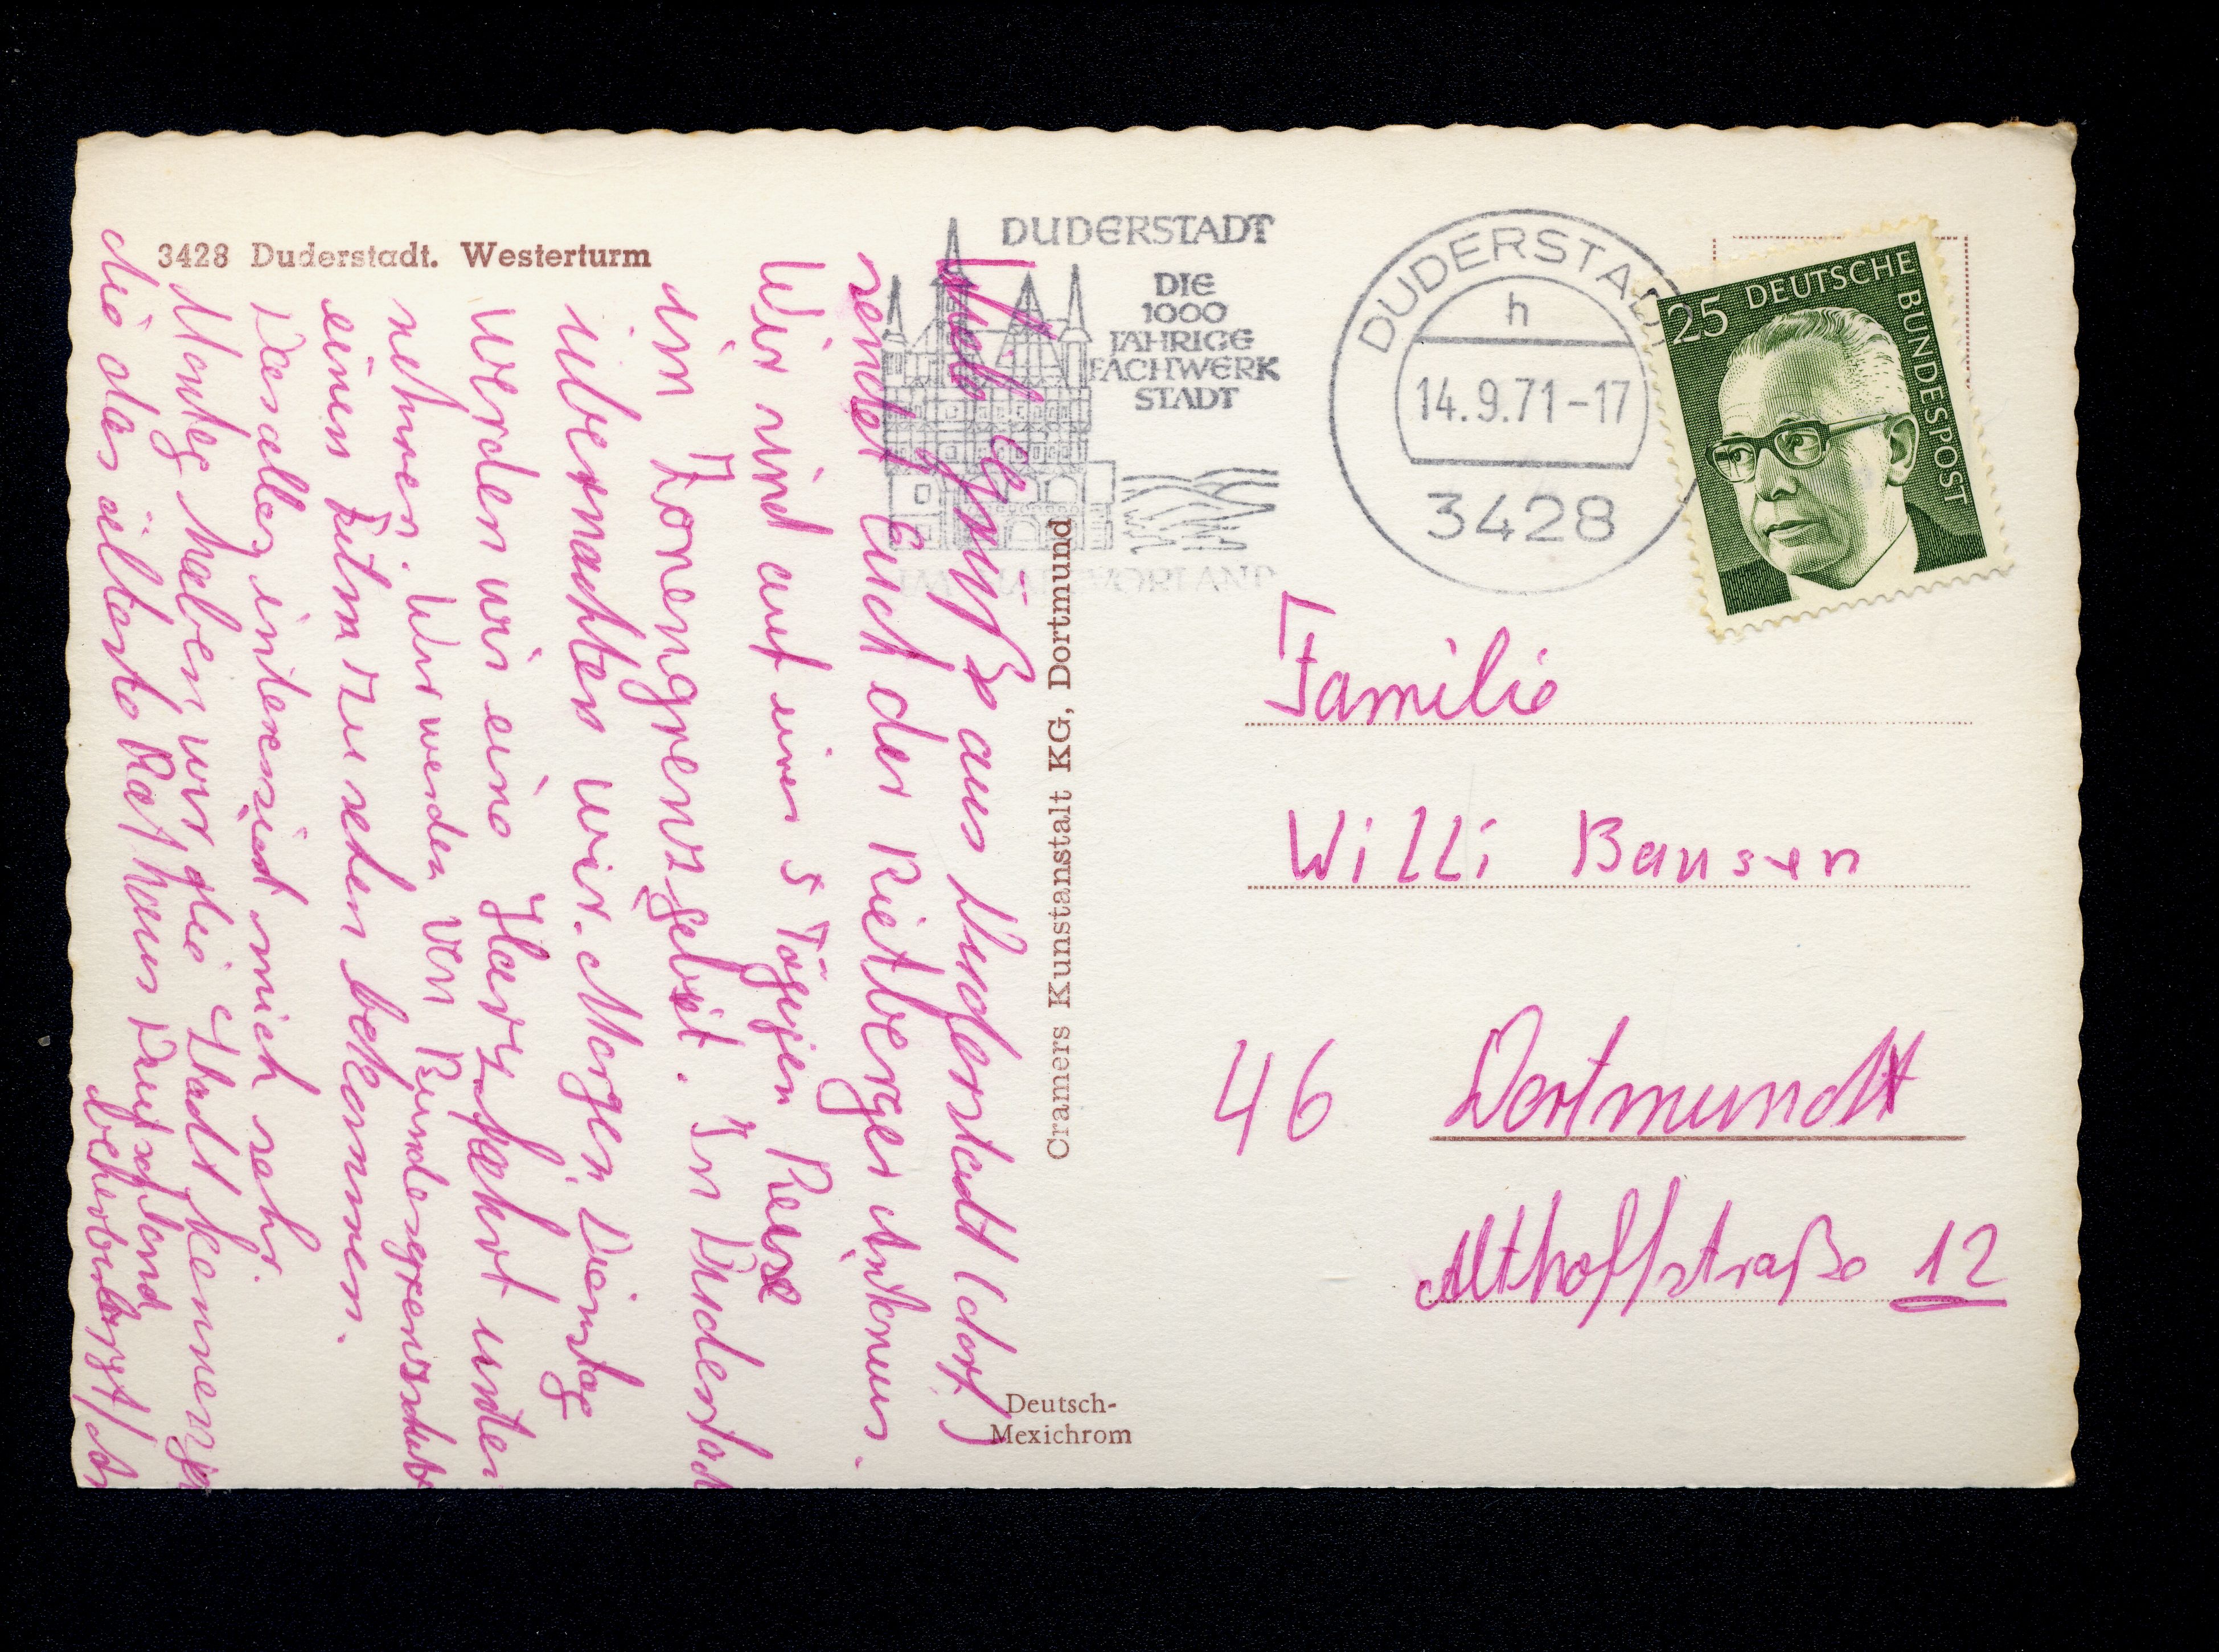 3428 Duderstadt. Westerturm
DUDERSTADT
DIE
1000
JÄHRIGE
FACHWERK
STADT
DUDERSTADT
h
14.9.71-17
3428
25 DEUTSCHE BUNDESPOST
Liebe Grüße aus Duderstadt (dorf)
sendet Euch der Rietberger Antonius.
Wir sind auf einer 5 Tägigen Reise
im Zonengrenzgebiet. In Duderstadt
übernachten wir. Morgen Dienstag
werden wir eine Harzfahrt unter
nehmen. Wir werden von Bundesgrenzschutz
einen Film zu sehen bekommen.
Das alles interessiert mich sehr.
Montag haben wir die Stadt kennengel
die das älteste Rathaus Deutschland
beherbergt/
Cramers Kunstanstalt KG, Dortmund
Deutsch-
Mexichrom
Familie
Willi Bausen
46 Dortmund
Althoffstraße 12